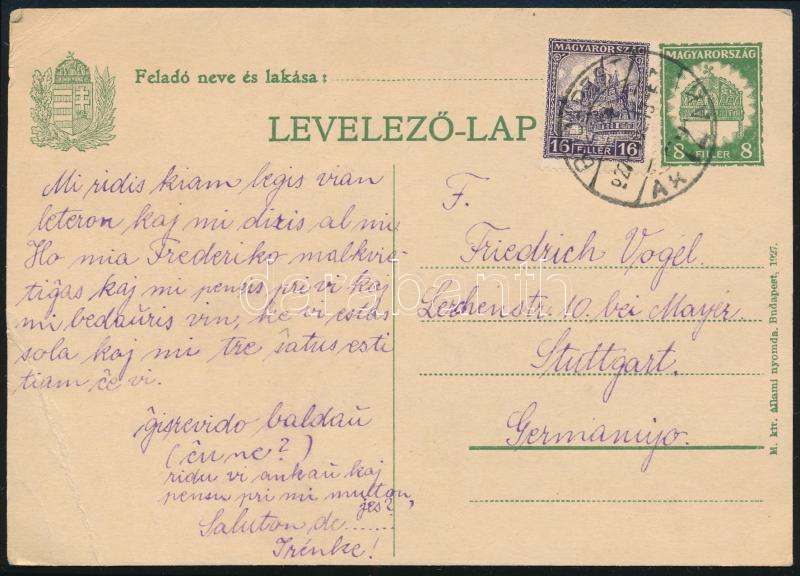 Feladó neve és lakása:
LEVELEZŐ-LAP
MAGYARORSZÁG
16 FILLÉR 16
MAGYARORSZÁG
8 FILLÉR 8
Mi ridis kiam legis vian
leteron kaj mi diris al mi:
Ho mia Frederiko malkvie
tigas kaj mi pensis pri vi kaj
mi bedaŭris vin, ke vi estas
sola kaj mi tre ŝatus esti
tiam ĉe vi.
ĝisrevido baldaŭ
(ĉu ne?)
ridu vi ankaŭ kaj
pensu pri mi multon,
jes?
Saluton de......
Irénke!
F.
Friedrich Vogel.
Lerchenstr. 10. bei Mayer.
Stuttgart.
Germanujo.
M. kir. állami nyomda, Budapest, 1927.
darabanth